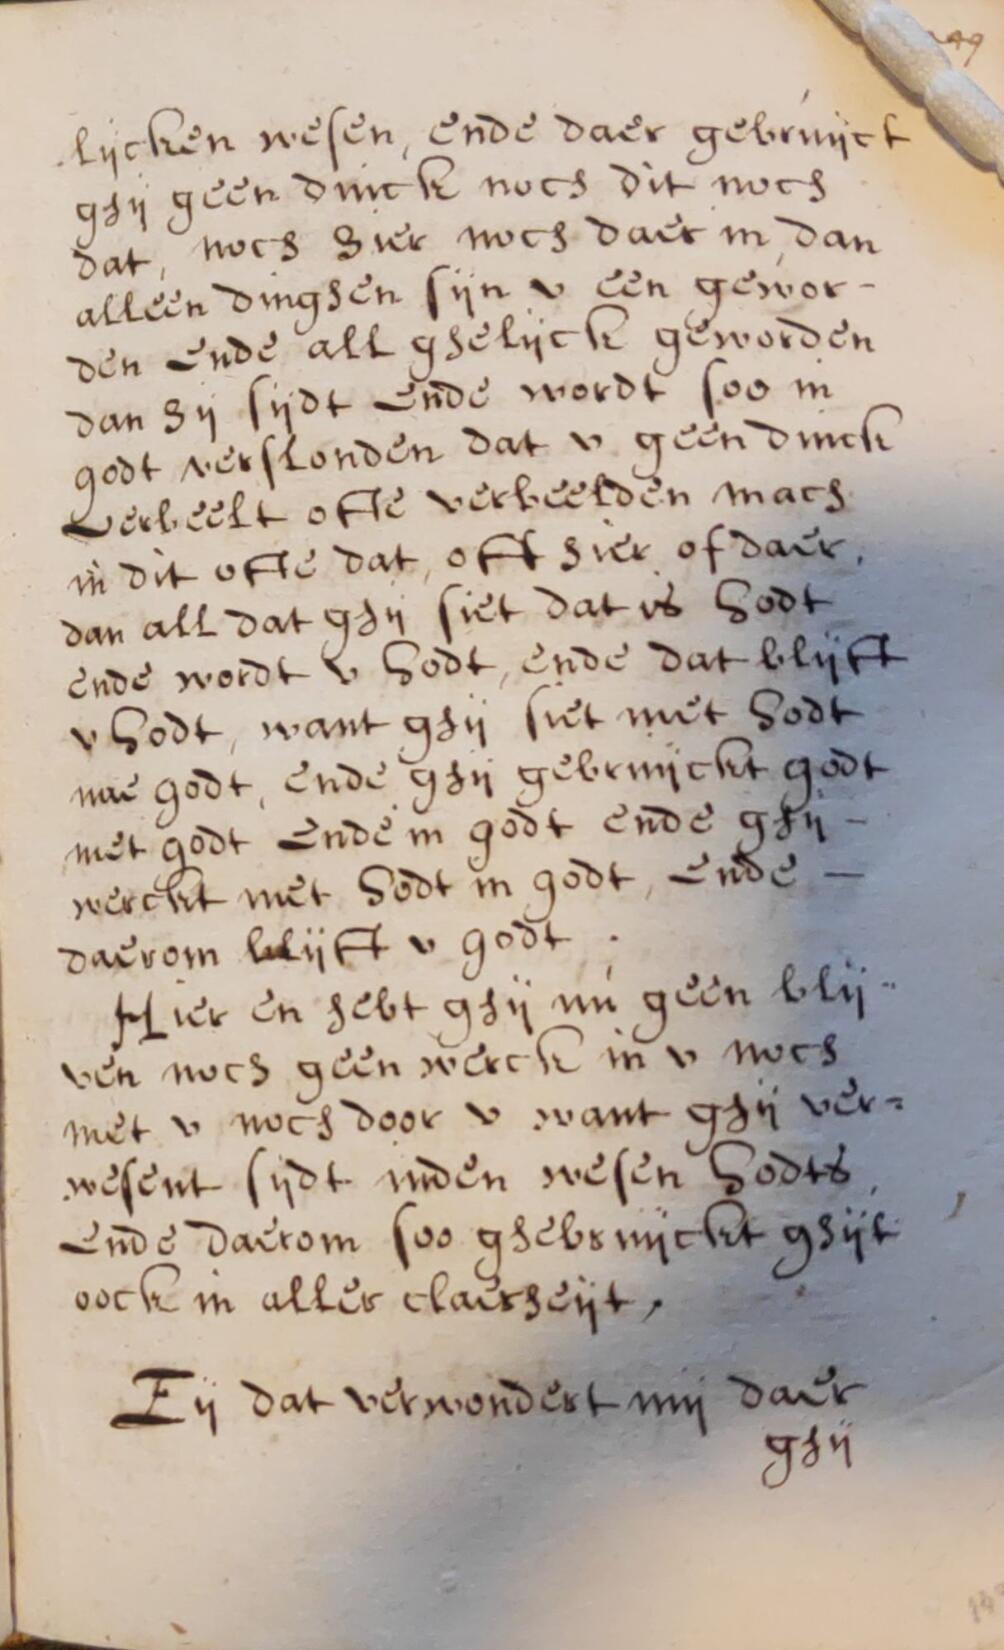 lijcken wesen, ende daer gebruijct
ghij geen dinck noch dit noch
dat, noch hier noch daer in, dan
alleen dinghen sijn v een gewor-
den ende all ghelijck geworden
dan hij sijdt ende wordt soo in
godt verslonden dat v geen dinck
verbeelt ofte verbeelden mach
in dit ofte dat, oft hier of daer,
dan all dat ghij siet dat is Godt
ende wordt v Godt, ende dat blijft
v Godt, want ghij siet met Godt
nae godt, ende ghij gebruijckt godt
met godt ende in godt ende ghij -
werckt met Godt in godt, ende -
daerom blijft v godt.
Hier en hebt ghij nú geen blij-
ven noch geen werck in v noch
met v noch door v want ghij ver=
wesent sijdt inden wesen Godts,
ende daerom soo ghebruijckt ghijt
oock in aller claerheijt,
Eij dat verwondert mij daer
ghij